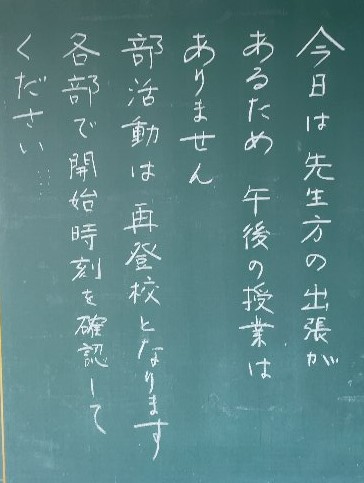 今日は先生方の出張が
あるため 午後の授業は
ありません
部活動は再登校となります
各部で開始時刻を確認して
ください……